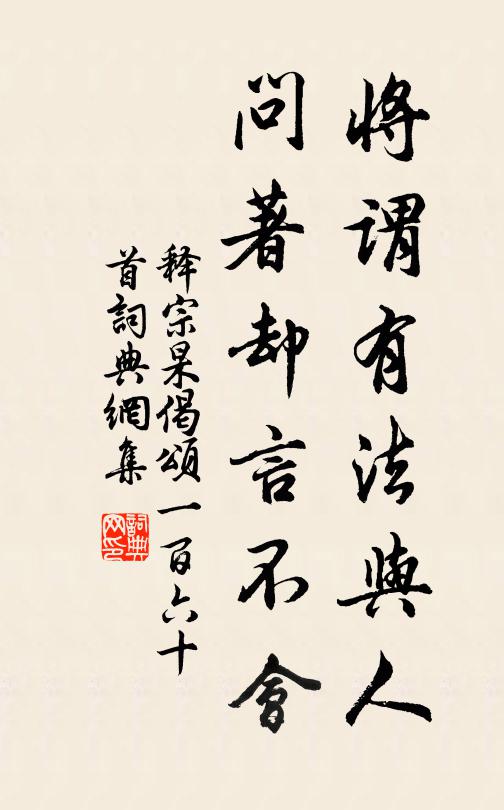 將謂有法與人
問著却言不會
释宗杲偈頌一百六十
首詞典網集
詞典
网印